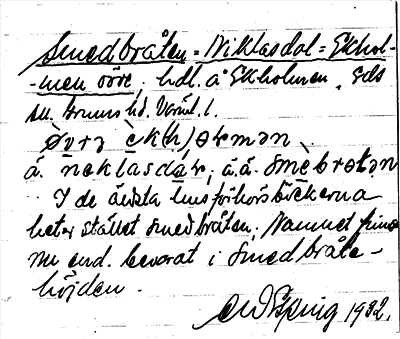 Smedbråten = Niklasdal = Ekhol-
-men övre, hdl. å Ekholmen, Eds
sn. Grums hd. Värml. l.
Øvrə ek(h)oɫmən
å. neklasdaɫ, ä.å. smebrotən
I de äldsta husförhörsböckerna
heter stället Smedbråten; Namnet finns
nu end. bevarat i Smedbråte-
höjden.
1932.